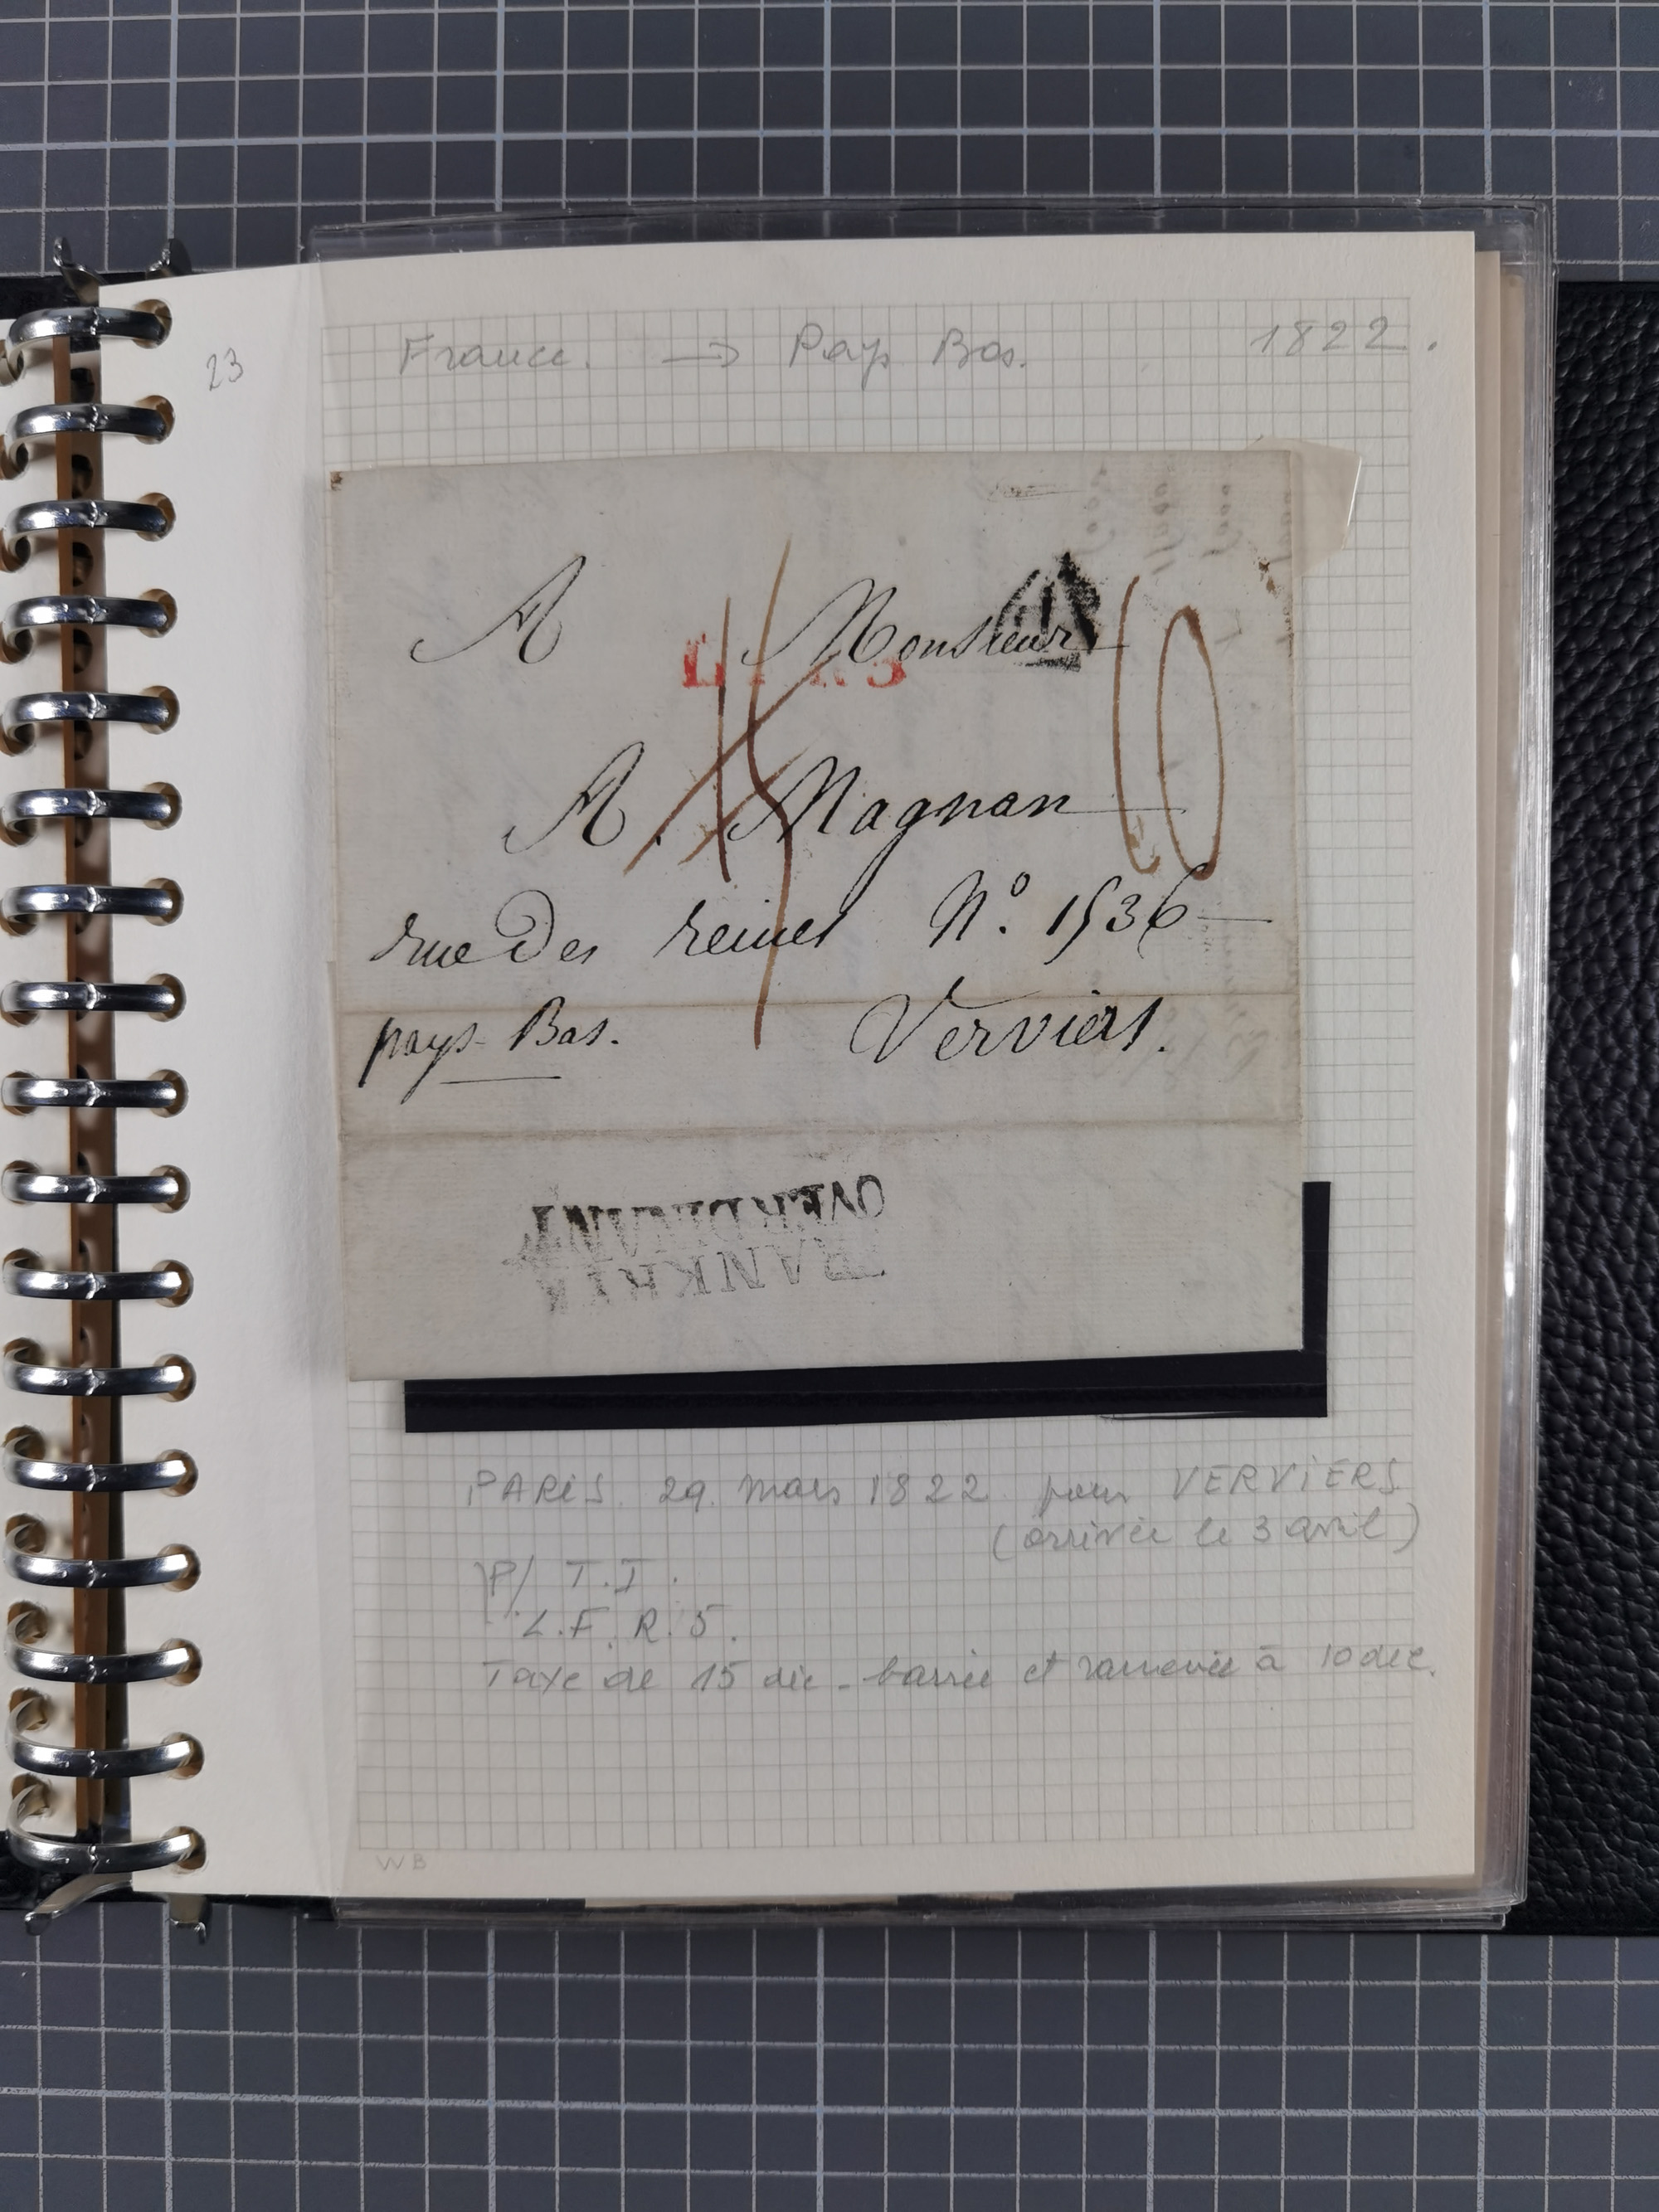 23
France. → Pays Bas. 1822.
A Monsieur
L.F.R.5
A. Magnan 10
15
rue des reines N.º 1536
pays-Bas. Verviers.
FRANKRYK
OVER DINANT
PARIS. 29. mars 1822 pour VERVIERS
(arrivée le 3 avril)
P/ T.T.
L.F.R.5.
Taxe de 15 déc. barrée et ramenée à 10 déc.
WB